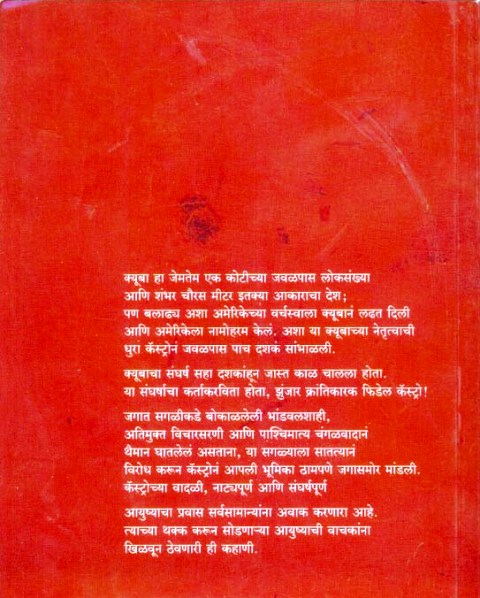 क्यूबा हा जेमतेम एक कोटीच्या जवळपास लोकसंख्या
आणि शंभर चौरस मीटर इतक्या आकाराचा देश;
पण बलाढ्य अशा अमेरिकेच्या वर्चस्वाला क्यूबानं लढत दिली
आणि अमेरिकेला नामोहरम केलं. अशा या क्यूबाच्या नेतृत्वाची
धुरा कॅस्ट्रोनं जवळपास पाच दशकं सांभाळली.
क्यूबाचा संघर्ष सहा दशकांहून जास्त काळ चालला होता.
या संघर्षाचा कर्ताकरविता होता, झुंजार क्रांतिकारक फिडेल कॅस्ट्रो!
जगात सगळीकडे बोकाळलेली भांडवलशाही,
अतिमुक्त विचारसरणी आणि पाश्चिमात्य चंगळवादानं
थैमान घातलेलं असताना, या सगळ्याला सातत्यानं
विरोध करून कॅस्ट्रोनं आपली भूमिका ठामपणे जगासमोर मांडली.
कॅस्ट्रोच्या वादळी, नाट्यपूर्ण आणि संघर्षपूर्ण
आयुष्याचा प्रवास सर्वसामान्यांना अवाक करणारा आहे.
त्याच्या थक्क करून सोडणाऱ्या आयुष्याची वाचकांना
खिळवून ठेवणारी ही कहाणी.